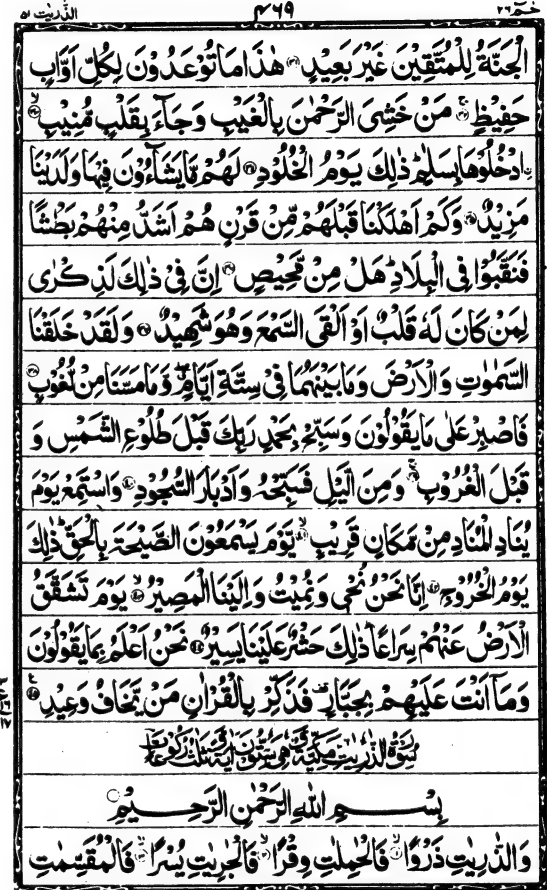 الذّٰریٰت ٥١ ٤٦٩ حٰمٓ ٢٦
الْجَنَّةُ لِلْمُتَّقِيْنَ غَيْرَ بَعِيْدٍ ﴿٣١﴾ هٰذَا مَا تُوْعَدُوْنَ لِكُلِّ اَوَّابٍ
حَفِيْظٍ ﴿٣٢﴾ مَنْ خَشِيَ الرَّحْمٰنَ بِالْغَيْبِ وَجَآءَ بِقَلْبٍ مُّنِيْبٍ ﴿٣٣﴾
ادْخُلُوْهَا بِسَلٰمٍ ذٰلِكَ يَوْمُ الْخُلُوْدِ ﴿٣٤﴾ لَهُمْ مَّا يَشَآءُوْنَ فِيْهَا وَلَدَيْنَا
مَزِيْدٌ ﴿٣٥﴾ وَكَمْ اَهْلَكْنَا قَبْلَهُمْ مِّنْ قَرْنٍ هُمْ اَشَدُّ مِنْهُمْ بَطْشًا
فَنَقَّبُوْا فِي الْبِلَادِ هَلْ مِنْ مَّحِيْصٍ ﴿٣٦﴾ اِنَّ فِيْ ذٰلِكَ لَذِكْرٰى
لِمَنْ كَانَ لَهٗ قَلْبٌ اَوْ اَلْقَى السَّمْعَ وَهُوَ شَهِيْدٌ ﴿٣٧﴾ وَلَقَدْ خَلَقْنَا
السَّمٰوٰتِ وَالْاَرْضَ وَمَا بَيْنَهُمَا فِيْ سِتَّةِ اَيَّامٍ وَّمَا مَسَّنَا مِنْ لُّغُوْبٍ ﴿٣٨﴾
فَاصْبِرْ عَلٰى مَا يَقُوْلُوْنَ وَسَبِّحْ بِحَمْدِ رَبِّكَ قَبْلَ طُلُوْعِ الشَّمْسِ وَ
قَبْلَ الْغُرُوْبِ ﴿٣٩﴾ وَمِنَ الَّيْلِ فَسَبِّحْهُ وَاَدْبَارَ السُّجُوْدِ ﴿٤٠﴾ وَاسْتَمِعْ يَوْمَ
يُنَادِ الْمُنَادِ مِنْ مَّكَانٍ قَرِيْبٍ ﴿٤١﴾ يَّوْمَ يَسْمَعُوْنَ الصَّيْحَةَ بِالْحَقِّ ذٰلِكَ
يَوْمُ الْخُرُوْجِ ﴿٤٢﴾ اِنَّا نَحْنُ نُحْيٖ وَنُمِيْتُ وَاِلَيْنَا الْمَصِيْرُ ﴿٤٣﴾ يَوْمَ تَشَقَّقُ
الْاَرْضُ عَنْهُمْ سِرَاعًا ذٰلِكَ حَشْرٌ عَلَيْنَا يَسِيْرٌ ﴿٤٤﴾ نَحْنُ اَعْلَمُ بِمَا يَقُوْلُوْنَ
وَمَآ اَنْتَ عَلَيْهِمْ بِجَبَّارٍ فَذَكِّرْ بِالْقُرْاٰنِ مَنْ يَّخَافُ وَعِيْدِ ﴿٤٥﴾
سُوْرَةُ الذّٰرِيٰتِ مَكِّيَّةٌ وَّهِيَ سِتُّوْنَ اٰيَةً وَّثَلٰثُ رُكُوْعَاتٍ
بِسْمِ اللّٰهِ الرَّحْمٰنِ الرَّحِيْمِ
وَالذّٰرِيٰتِ ذَرْوًا ﴿١﴾ فَالْحٰمِلٰتِ وِقْرًا ﴿٢﴾ فَالْجٰرِيٰتِ يُسْرًا ﴿٣﴾ فَالْمُقَسِّمٰتِ